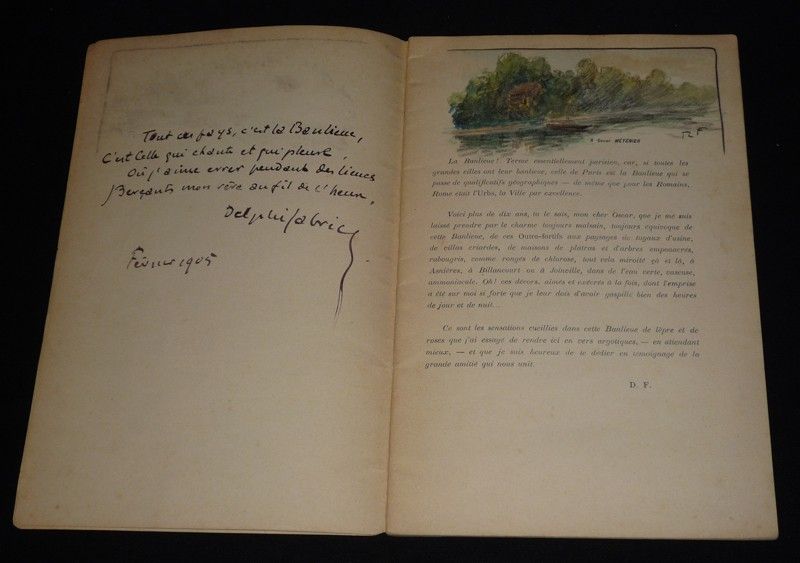 Tout ce pays, c'est la Banlieue,
C'est Celle qui chante et qui pleure,
Où j'aime errer pendant des lieues
Berçant mon rêve au fil de l'heure,
Delphi Fabrice
Février 1905
A Oscar MÉTÉNIER
La Banlieue! Terme essentiellement parisien, car, si toutes les
grandes villes ont leur banlieue, celle de Paris est la Banlieue qui se
passe de qualificatifs géographiques — de même que pour les Romains,
Rome était l'Urbs, la Ville par excellence.
Voici plus de dix ans, tu le sais, mon cher Oscar, que je me suis
laissé prendre par le charme toujours malsain, toujours équivoque de
cette Banlieue, de ces Outre-fortifs aux paysages de tuyaux d'usine,
de villas criardes, de maisons de plâtras et d'arbres emponacrés,
rabougris, comme rongés de chlorose, tout cela miroité çà et là, à
Asnières, à Billancourt ou à Joinville, dans de l'eau verte, vaseuse,
ammoniacale. Oh! ces décors, aimés et exécrés à la fois, dont l'emprise
a été sur moi si forte que je leur dois d'avoir gaspillé bien des heures
de jour et de nuit...
Ce sont les sensations cueillies dans cette Banlieue de lèpre et de
roses que j'ai essayé de rendre ici en vers argotiques, — en attendant
mieux, — et que je suis heureux de te dédier en témoignage de la
grande amitié qui nous unit.
D. F.